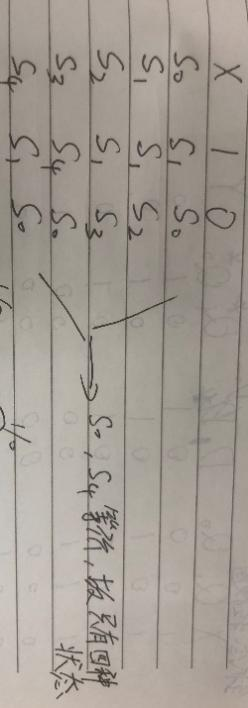 X 1 0
S₀ S₁ S₀
S₁ S₁ S₂
S₂ S₁ S₃
S₃ S₄ S₀
S₄ S₁ S₀
S₀, S₄ 等价, 故只有四种
状态